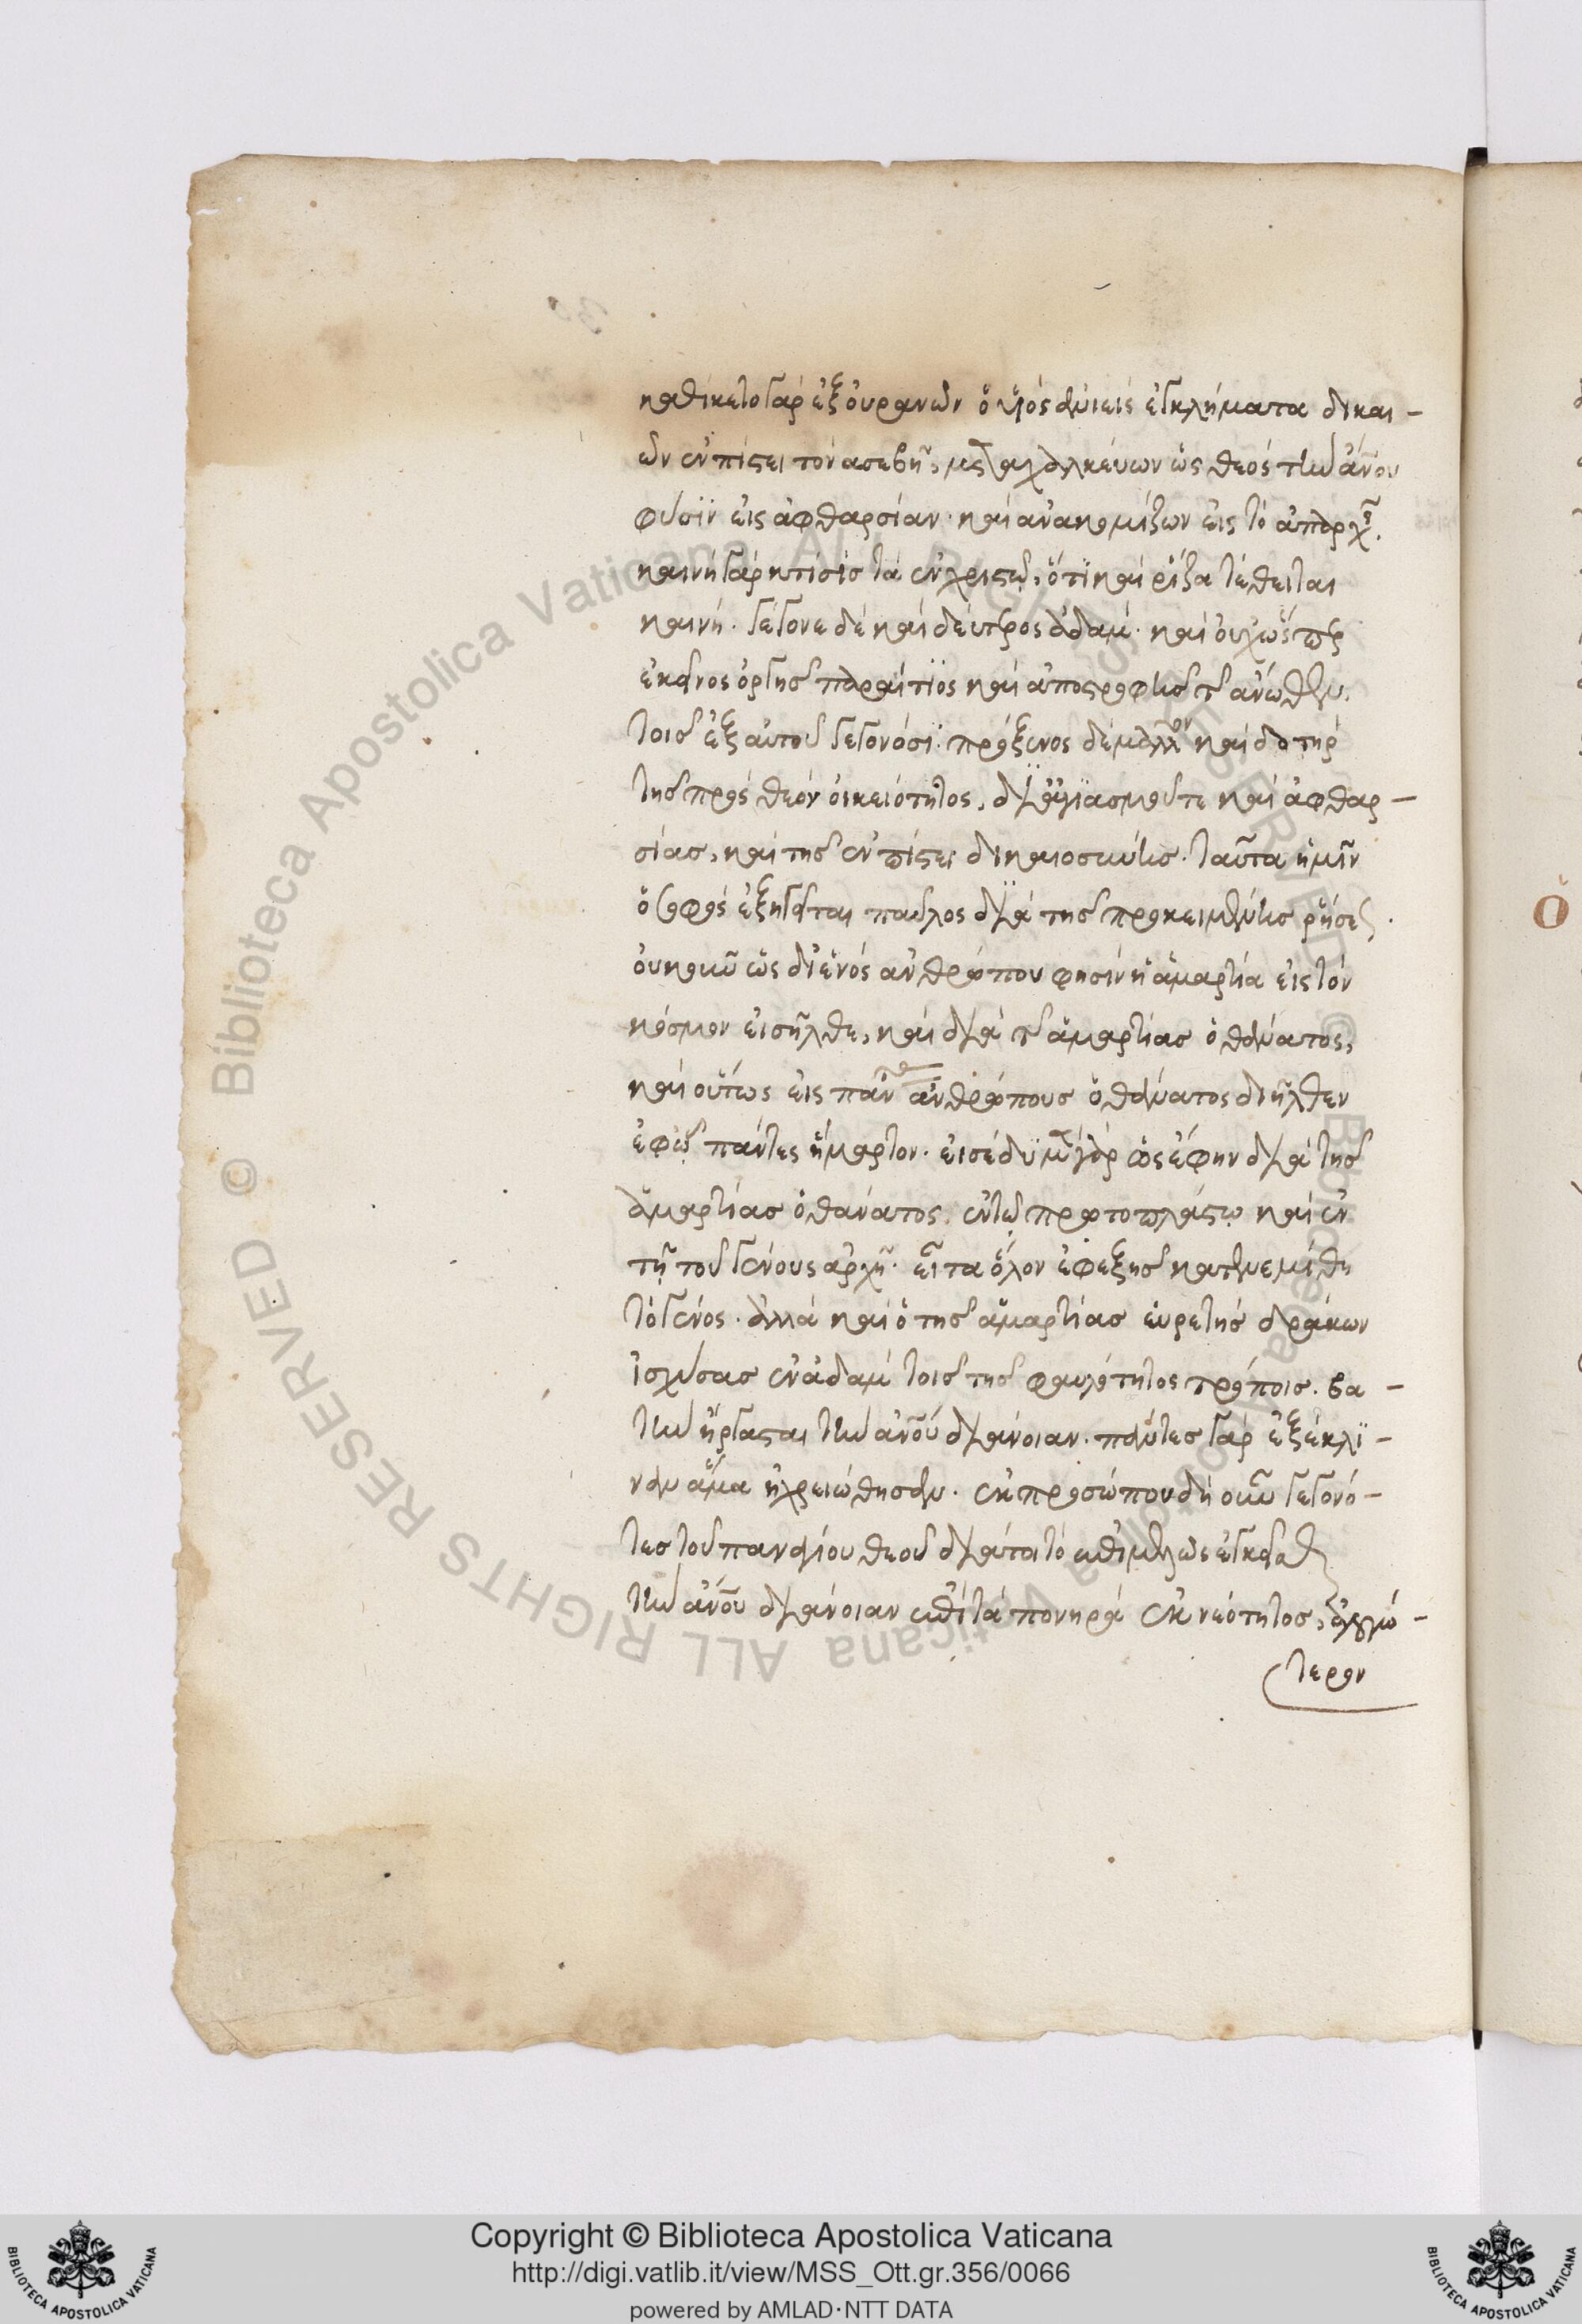 καθίκετο γὰρ ἐξ οὐρανῶν ὁ υἱὸς ἀνιεὶς ἐγκλήματα δικαι-
ῶν ἐν πίστει τὸν ασεβῆ, μεταχαλκεύων ὡς θεὸς τὴν ἀνου
φύσϊν εἰς ἀφθαρσίαν· καὶ ἀνακομίζων εἰς τὸ ἀπαρχῆς.
καινὴ γὰρ κτίσϊς τὰ ἐν χριστῷ, ὅτϊ καὶ ρἵζα τέθειται
καινή. γέγονε δὲ καὶ δεύτερος ἀδαμ· καὶ οὐχ ὥσπερ
ἐκεῖνος ὀργῆς παραίτϊος καὶ ἀποστροφῆς τῆς ἄνωθεν.
τοῖς ἐξ αὐτοῦ γεγονόσϊ· πρόξενος δὲ μᾶλλον καὶ δοτὴρ
τῆς πρὸς θεὸν οἰκειότητος, δι ἁγϊασμοῦ τε καὶ ἀφθαρ-
σίας, καὶ τῆς ἐν πίστει δικαιοσύνης. ταῦτα ἡμῖν
ὁ σοφὸς ἐξηγεῖται παῦλος διὰ τῆς προκειμένης ρήσεως.
οὐκοῦν ὡς δι ἑνὸς ἀνθρώπου φησὶν ἡ ἁμαρτία εἰς τὸν
κόσμον εἰσῆλθε, καὶ διὰ τῆς ἁμαρτίας ὁ θάνατος,
καὶ οὕτως εἰς πάντας ἀνθρώπους ὁ θάνατος διῆλθεν
ἐφ ᾧ πάντες ἥμαρτον. εἰσέδϋ μὲν γὰρ ὡς ἔφην διὰ τῆς
ἁμαρτίας ὁ θανάτος. ἐν τῷ πρωτοπλάστῳ καὶ ἐν
τῇ τοῦ γένους ἀρχῇ· εἶτα ὅλον ἐφεξῆς κατενεμίθη
τὸ γένος. ἀλλὰ καὶ ὁ τῆς ἁμαρτίας εὑρετὴς δράκων
ἰσχύσας ἐν ἀδαμ τοῖς τῆς φαυλότητος τρόποις. βα-
τὴν ἤργασται τὴν ἀνου διάνοιαν. πάντες γὰρ ἐξέκλϊ-
ναν ἅμα ἠχρειώθησαν. ἐκ προσώπου δὴ οὖν γεγονό-
τες τοῦ παναγίου θεοῦ διάτοι τὸ ἐπιμελῶς ἐγκεῖσθαι
τὴν ἀνου διάνοιαν ἐπὶ τὰ πονηρὰ ἐκ νεότητος, ἀλογώ-
τερον